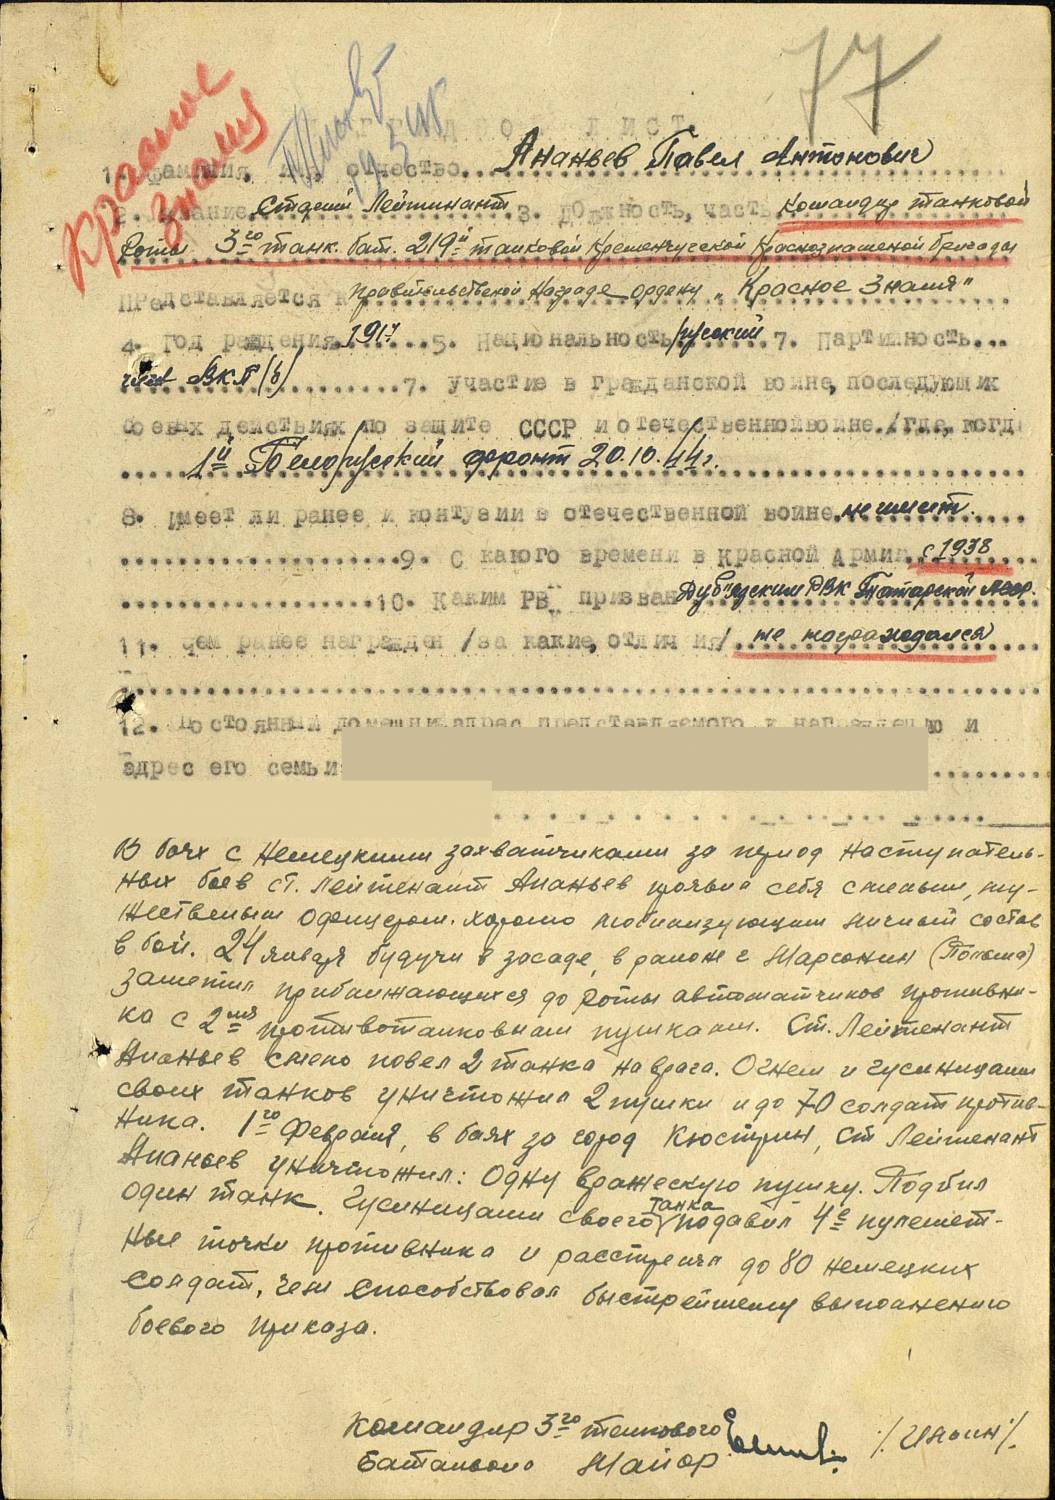 77
Красное
Знамя
Наградной лист
1. Фамилия, имя, отчество Ананьев Павел Антонович
2. Звание Старший Лейтинант 3. Должность, часть Командир танковой
Роты 3го танк. бат. 219й танковой Кременчугской Краснознаменой бригады
Представляется к правительственой награде ордену „Красное Знамя"
4. Год рждения 1917 5. Национальность русский 7. Партийность
член ВКП(б) 7. участие в гражданской войне, последующих
боевых действиях по защите СССР и отечественной войне /где, когда
1й Белорусский фронт 20.10.44г.
8. Имеет ли ранее и контузии в отечественной войне не имеет.
9. С какого времени в Красной Армии с 1938
10. Каким РВК призван РВК Татарской АССР.
11. чем ранее награжден /за какие, отличия/ не награждался
12. Постоянный домашний адрес представляемого к награждению и
адрес его семьи
В боях с немецкими захватчиками за период наступатель-
ных боев ст. лейтенант Ананьев проявил себя смелым, му-
жественым офицером. хорошо мобилизующим личный состав
в бой. 24 января будучи в засаде, в районе с (Польша)
заметил приближающихся до роты автоматчиков противни-
ка с 2мя противотанковыми пушками. Ст. Лейтенант
Ананьев смело повел 2 танка на врага. Огнем и гусиницами
своих танков уничтожил 2 пушки и до 70 солдат против-
ника. 1го Февраля, в боях за город Кюстрин, Ст Лейтенант
Ананьев уничтожил: Одну вражескую пушку. Подбил
один танк. Гусиницами своего танка подавил 4е пулемет-
ные точки противника и расстрелял до 80 немецких
солдат, чем способствовал быстрейшему выполнению
боевого приказа.
Командир 3го танкового
Батальона Майор